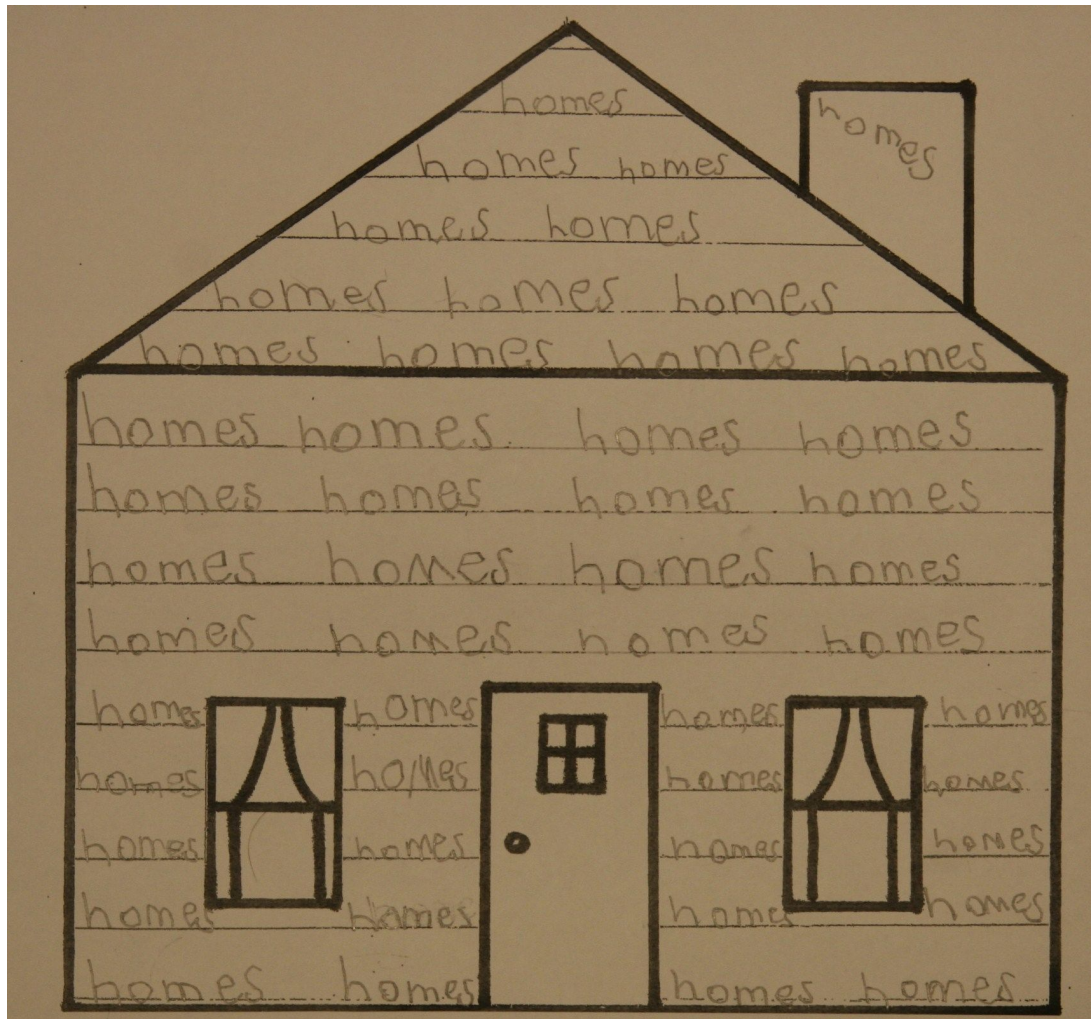 homes
homes
homes homes
homes homes
homes homes homes
homes homes homes homes
homes homes homes homes
homes homes homes homes
homes homes homes homes
homes homes homes homes
homes homes homes homes
homes homes homes homes
homes homes homes homes
homes homes homes homes
homes homes homes homes